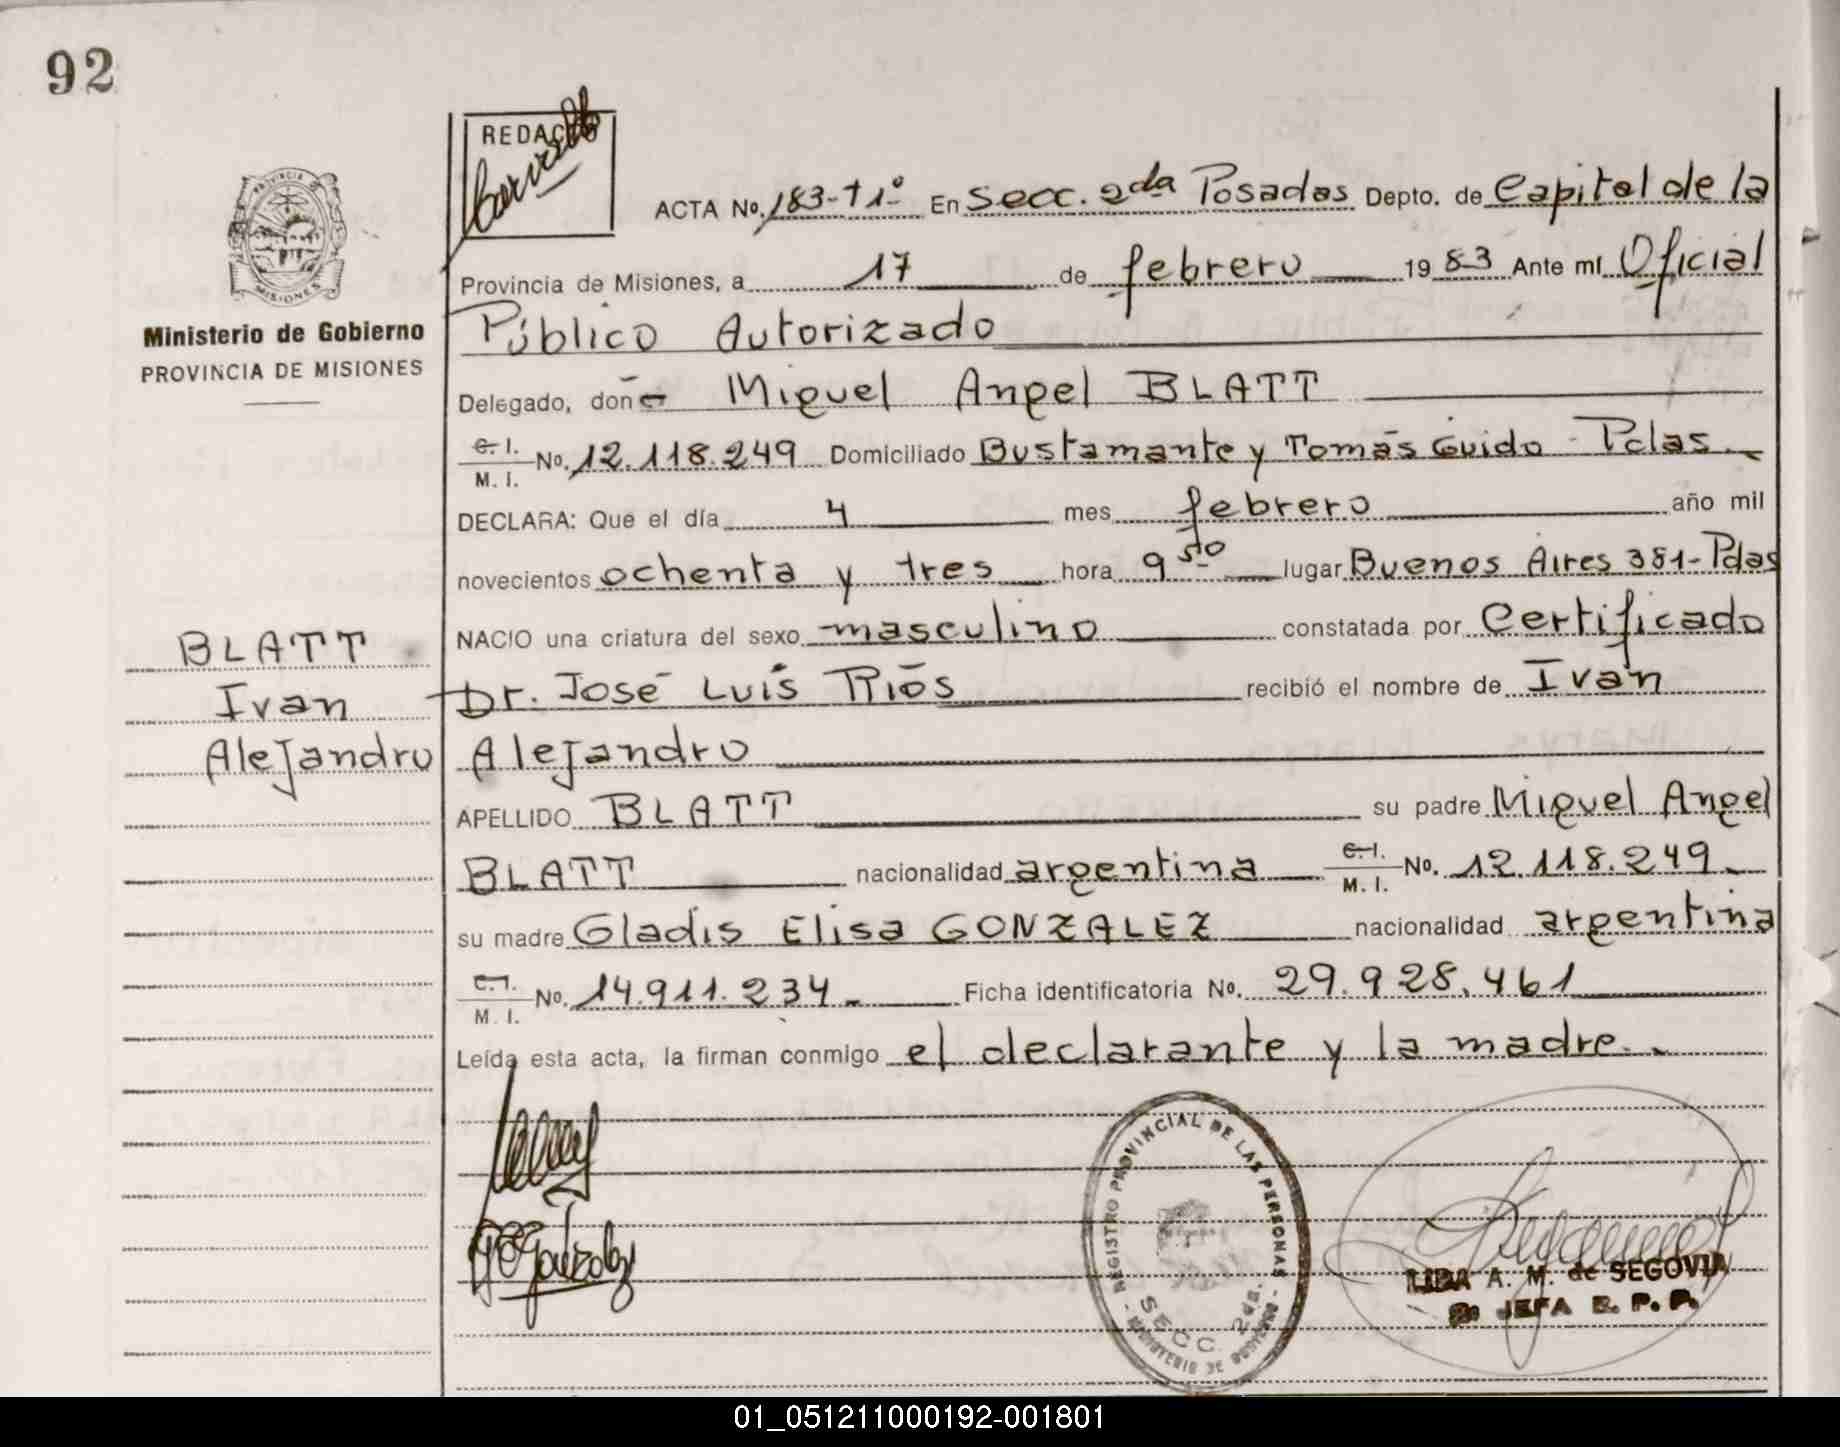 92
REDACTO
PROVINCIA DE
MISIONES
Ministerio de Gobierno
PROVINCIA DE MISIONES
ACTA No. 183-T1º En Secc. 2da Posadas Depto. de Capital de la
Provincia de Misiones, a 17 de febrero 1983 Ante mí Oficial
Público Autorizado
Delegado, don Miguel Angel BLATT
C. I.
M. I. No. 12.118.249 Domiciliado Bustamante y Tomás Guido - Pdas
DECLARA: Que el día 4 mes febrero año mil
novecientos ochenta y tres hora 9 50 lugar Buenos Aires 381-Pdas
NACIO una criatura del sexo masculino constatada por Certificado
Dr. José Luis Ríos recibió el nombre de Ivan
Alejandro
APELLIDO BLATT su padre Miguel Angel
BLATT nacionalidad argentina C. I. M. I. No. 12.118.249
su madre Gladis Elisa GONZALEZ nacionalidad argentina
C. I.
M. I. No. 14.911.234 Ficha identificatoria No. 29.928.461
Leída esta acta, la firman conmigo el declarante y la madre.
BLATT
Ivan
Alejandro
REGISTRO PROVINCIAL DE LAS PERSONAS
SECC. 2da.
MINISTERIO DE GOBIERNO
LIDA A. M. de SEGOVIA
JEFA R. P. P.
01_051211000192-001801